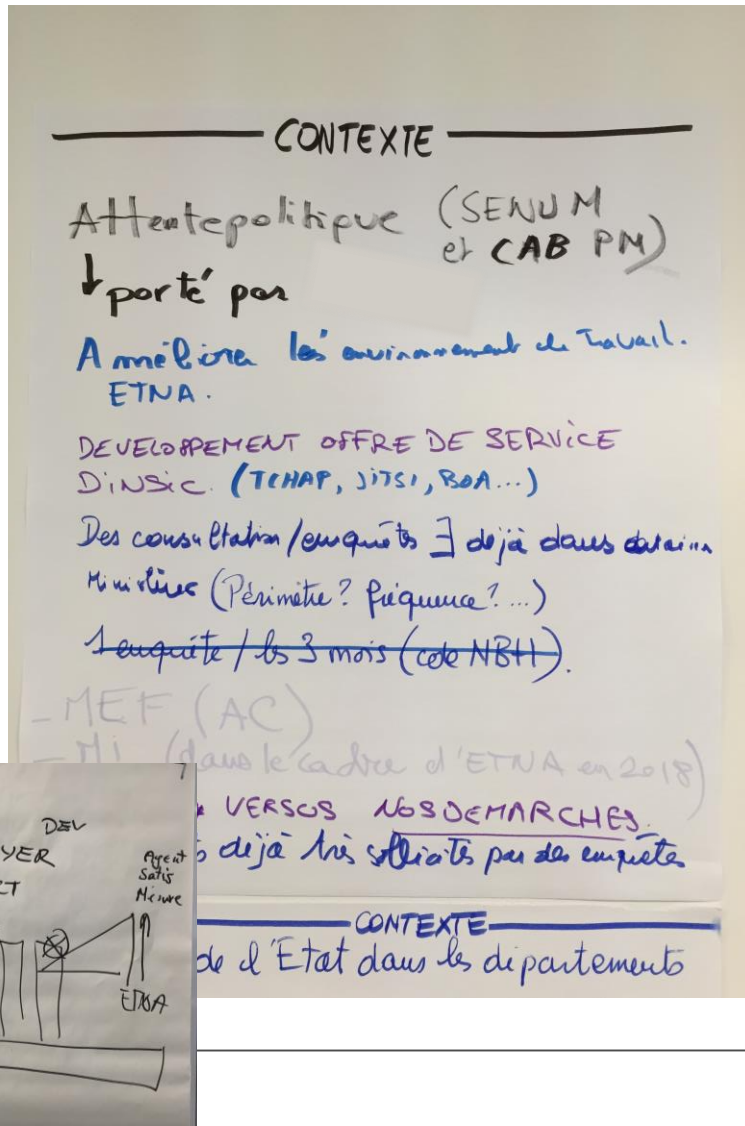 CONTEXTE
Attente politique (SENUM
et CAB PM)
↓ porté par
Améliorer les environnement de Travail.
ETNA.
DEVELOPPEMENT OFFRE DE SERVICE
DiNSiC. (TCHAP, JITSI, BOA...)
Des consultation/enquêtes ∃ déjà dans certains
Ministères (Périmètre? fréquence?...)
1 enquête / les 3 mois (côté NBH).
- MEF (AC)
- MI (dans le cadre d'ETNA en 2018)
VERSUS NOS DEMARCHES.
déjà très sollicités par des enquêtes
CONTEXTE
de l'Etat dans les départements
DEV
YER
Agent
Satis
Mesure
ETNA